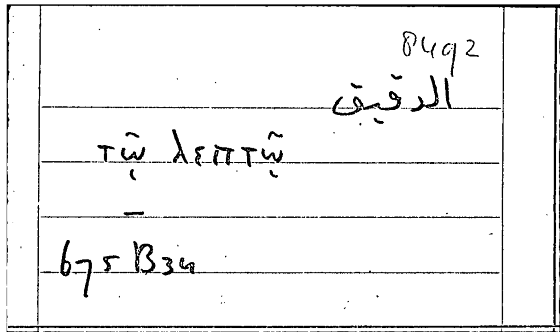 8492
الدقيق
τῷ λεπτῷ
–
675 B34